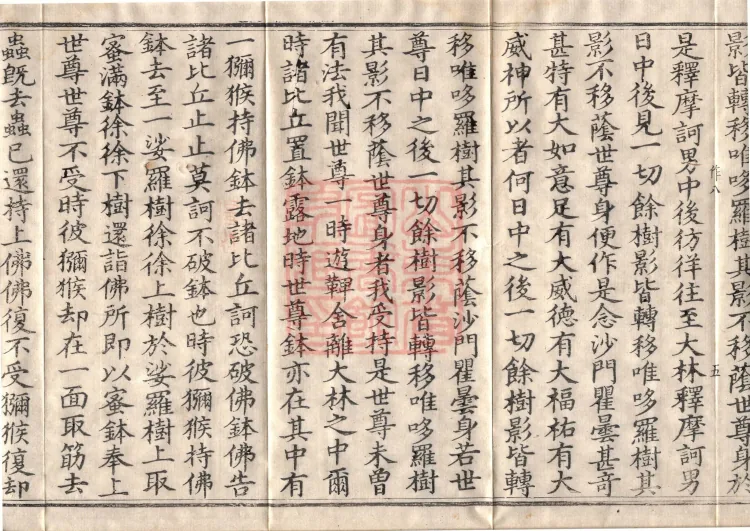 影皆轉移唯哆羅樹其影不移蔭世尊身於
是釋摩訶男中後彷徉往至大林釋摩訶男
日中後見一切餘樹影皆轉移唯哆羅樹其
影不移蔭世尊身便作是念沙門瞿曇甚奇
甚特有大如意足有大威德有大福祐有大
威神所以者何日中之後一切餘樹影皆轉
移唯哆羅樹其影不移蔭沙門瞿曇身若世
尊日中之後一切餘樹影皆轉移唯哆羅樹
其影不移蔭世尊身者我受持是世尊未曾
有法我聞世尊一時遊鞞舍離大林之中爾
時諸比丘置鉢露地時世尊鉢亦在其中有
一獼猴持佛鉢去諸比丘訶恐破佛鉢佛告
諸比丘止止莫訶不破鉢也時彼獼猴持佛
鉢去至一娑羅樹徐徐上樹於娑羅樹上取
蜜滿鉢徐徐下樹還詣佛所即以蜜鉢奉上
世尊世尊不受時彼獼猴却在一面取筋去
蟲既去蟲已還持上佛佛復不受獼猴復却
作八
五